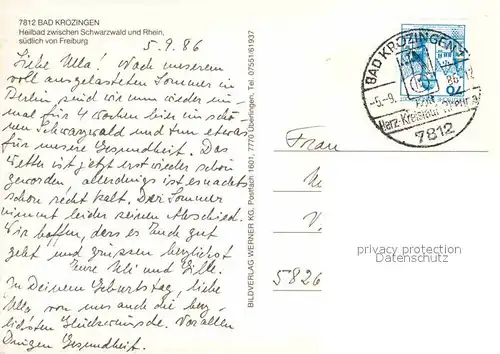 7812 BAD KROZINGEN
Heilbad zwischen Schwarzwald und Rhein,
südlich von Freiburg
5.9.86
Liebe Ulla! Nach unserem
voll ausgelasteten Sommer in
Berlin sind wir nun wieder ein-
mal für 4 Wochen hier im schö-
nen Schwarzwald und tun etwas
für unsere Gesundheit. Das
Wetter ist jetzt erst wieder schön
geworden, allerdings ist es nachts
schon recht kalt. Der Sommer
nimmt leider seinen Abschied.
Wir hoffen, dass es Euch gut
geht und grüssen herzlichst
Eure Uli und
Zu Deinem Geburtstag, liebe
Ulla, von uns auch die herz-
lichsten Glückwünsche. Vor allen
Dingen Gesundheit.
BILDVERLAG WERNER KG, Postfach 1601, 7770 Überlingen, Tel. 07551/61937
BAD KROZINGEN
-5.-9. 86-12
Herz-Kreislauf
7812
70
Frau
V.
5826
privacy protection